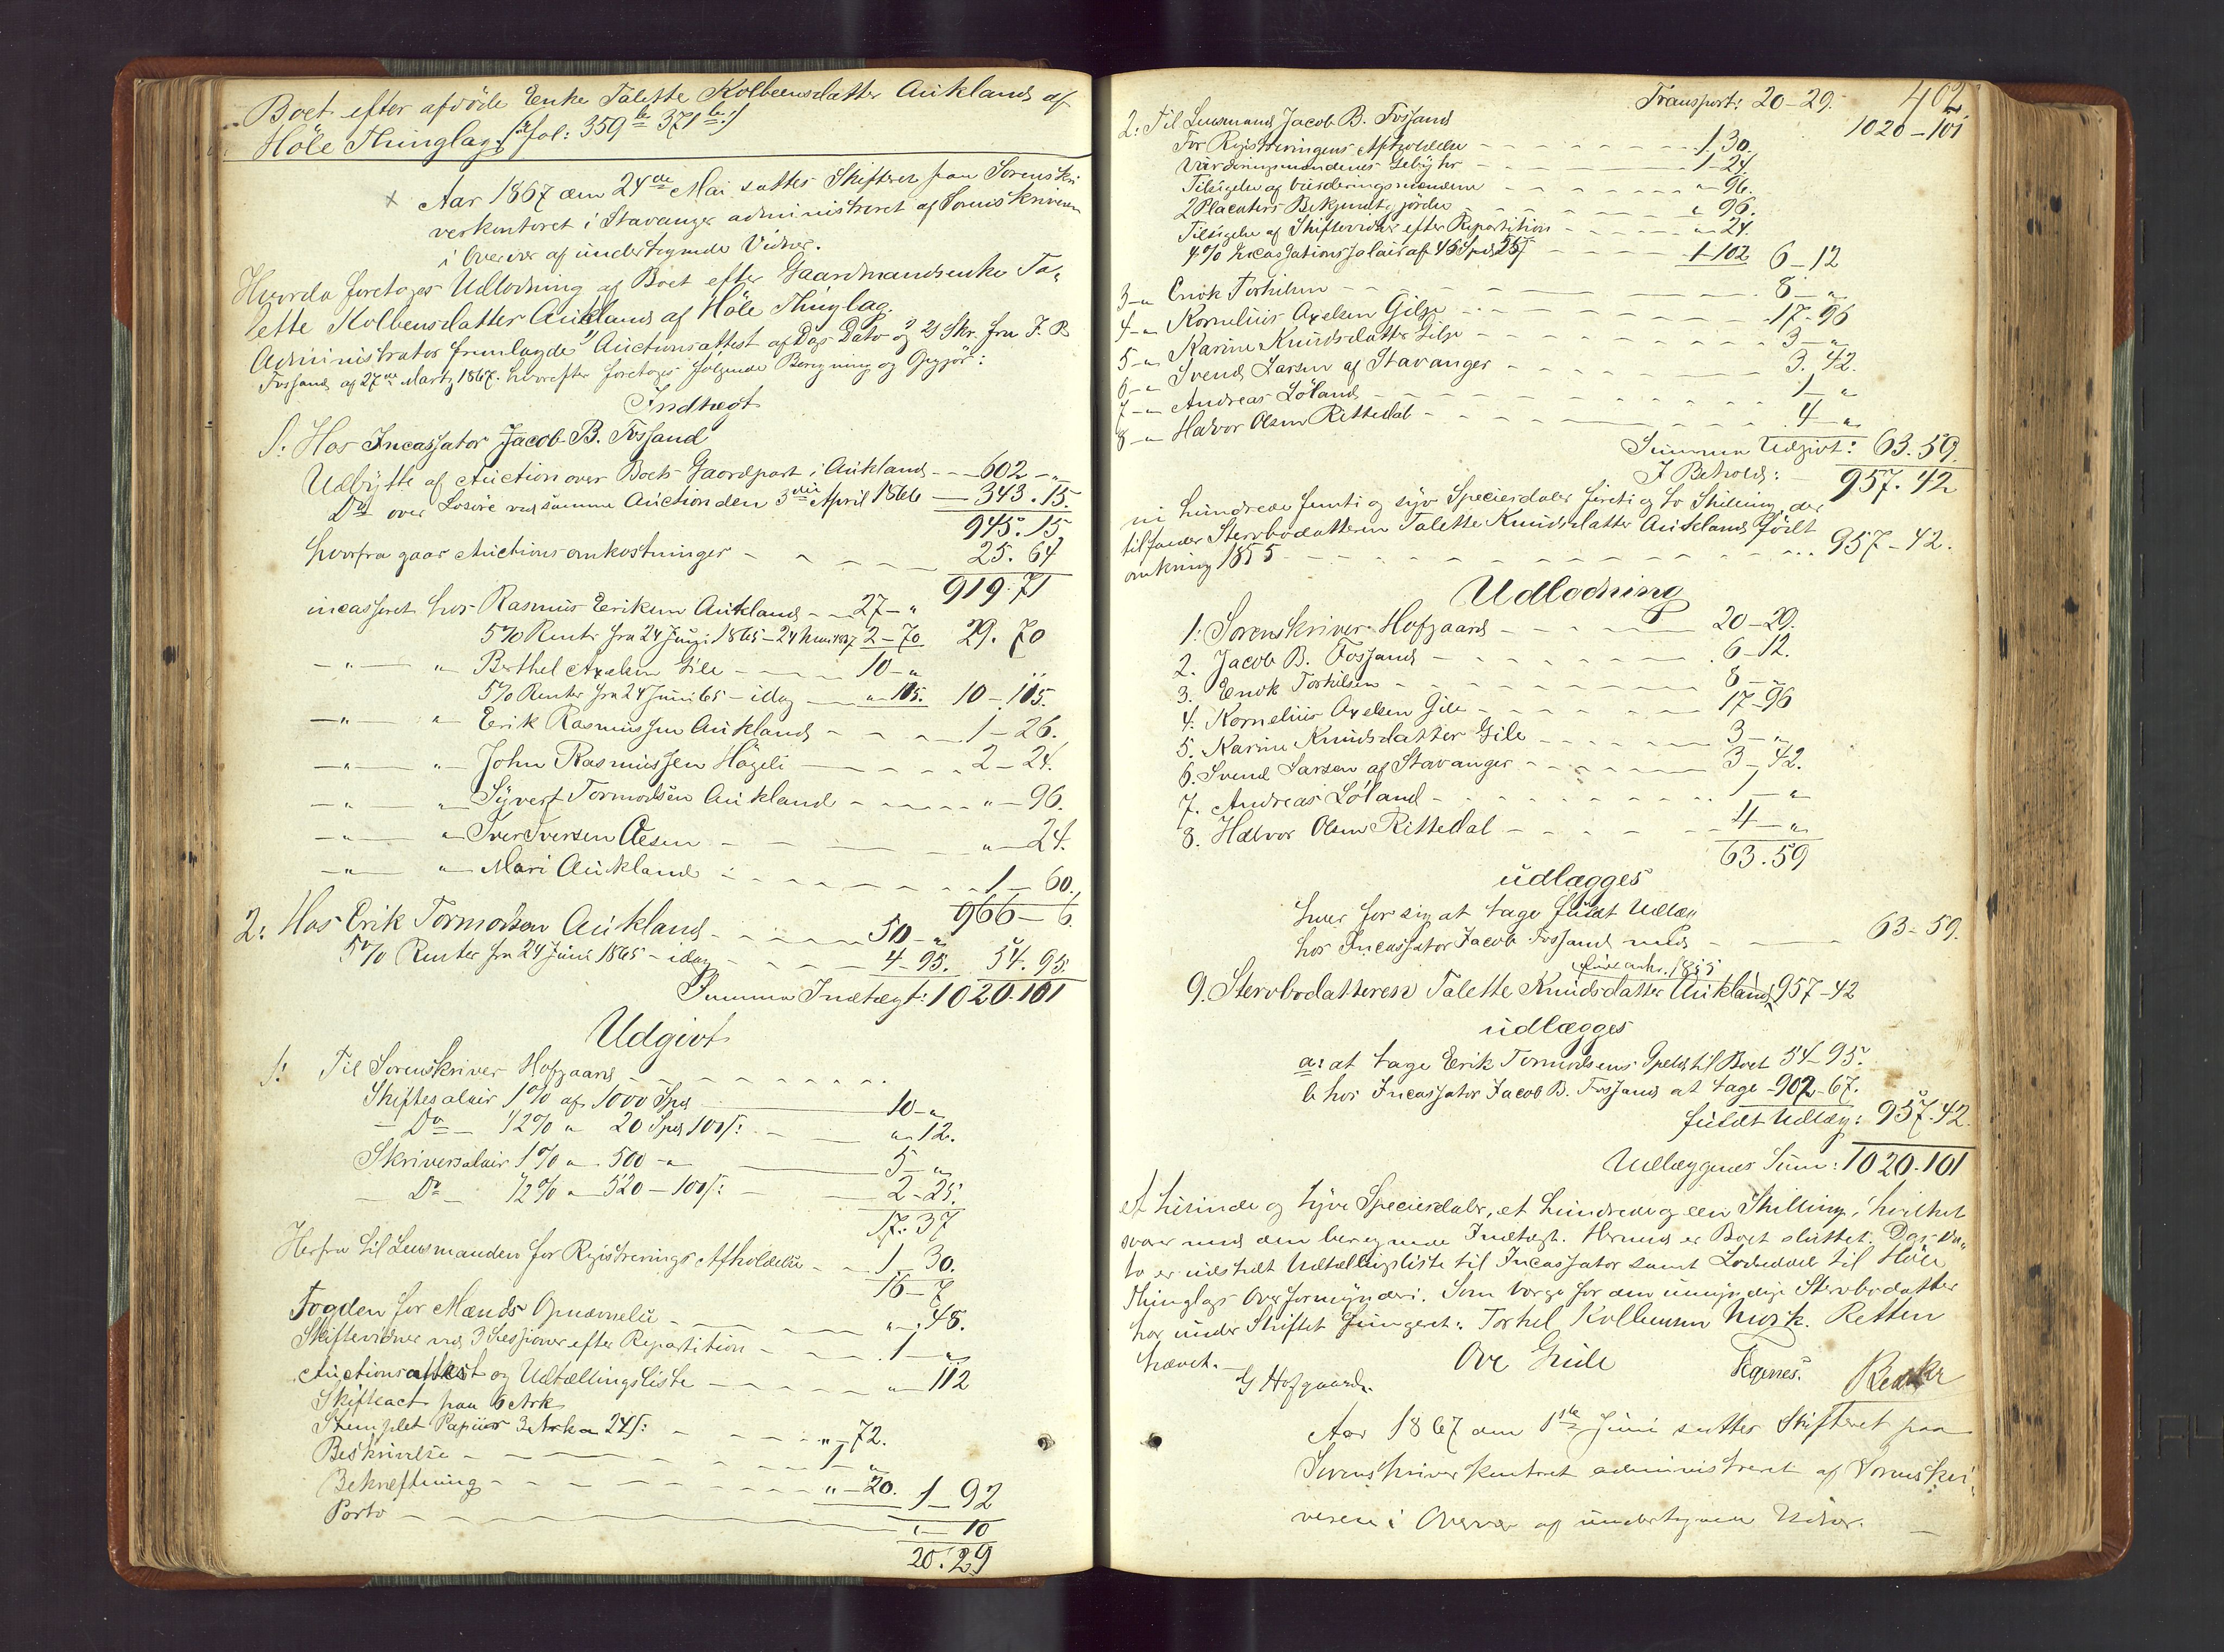 Boet efter afdöde Enke Talette Kolbeensdatter Auklands af
Höle Thinglag (: fol: 359 b 371 b :)
Aar 1867 den 24de Mai sattes Skifteret paa Sorenskri
verkontoret i Stavanger administreret af Sorenskriveren
i Overvær af undertegnede Vidner.
Hvorda foretoges Udlodning af Boet efter Gaardmandsenke Ta-
lette Kolbensdatter Aukland af Höle Thinglag.
Administrator fremlagde 1) Auctionsattest af Dags Dato og 2) Skr. fra J. B
Fossand af 27de Marts 1867. hvorefter foretoges følgende Beregning og Opgjör:
Indtægt
1: Hos Incassator Jacob B. Fossand
Udbytte af Auction over Boets Gaardpart i Aukland - - 602 - "
Do over Losöre ved samme Auction den 3die April 1866 — 343. 15.
945. 15
hvorfra gaar Auctionsomkostninger - 25. 64
919. 71
incasseret hos Rasmus Eriksen Aukland - - 27 - "
5% Rente fra 24 Juni 1865 - 24 Mai 1867 2 - 70 29. 70
- " - " Berthel Axelsen Gile - 10 - "
5% Renter fra 24 Juni 65 - idag - " 105. 10 - 105.
- " - " Erik Rasmussen Aukland - 1 - 26.
- " - " John Rasmussen Högeli - 2 - 24.
- " - " Syvert Tormodsen Aukland - " - 96.
- " - " Iver Iversen Aesen - " - 24.
- " - " Mari Aukland - 1 - 60.
966 - 6
2: Hos Erik Tormodsen Aukland - 50 - "
5% Renter fra 24 Juni 1865 - idag - 4 - 95. 54. 95.
Summa Indtægt: 1020. 101
Udgivt
1: Til Sorenskriver Hofgaard
Skiftesalair 1% af 1000 Spd 10 - "
Do 1/2% " 20 Spd 101 s: " 12.
Skriversalair 1% " 500 - " 5 - "
Do 1/2% " 520 - 101 s: 2 - 25.
17. 37
Herfra til Lensmanden for Registrerings Afholdelse - 1 - 30.
16 - 7
Fogden for Mænds Opnævnelse - " - 48.
Skiftevidner ved 3 Sessioner efter Repartition - 1 - "
Auctionsattest og Udtællingsliste - " 112
Skifteact paa 6 Ark
Stemplet Papiir 3 Ark a 24 s: - " - 72.
Beskrivelse - 1 - "
Bekræftning - " - 20. 1 - 92
Porto - " - 10
20. 29
402
Transport: 20 - 29. 1020 - 101
2: Til Lensmand Jacob B. Fossand
For Registreringens Afholdelse - 1. 30.
Vurderingsmændenes Gebyhr - 1 - 24.
Tilsigelse af Vurderingsmændene - " 96.
2 Placaters Bekjendtgjörelse - " 96.
Tilsigelse af Skiftevidner efter Repartition - " 24.
4% Incassationssalair af 46 Spd 25 s 1 - 102 6 - 12
3 - " Enok Torkilsen - 8 - "
4 - " Kornelius Axelsen Gilje - 17 - 96
5 - " Karine Knudsdatter Gilje - 3 - "
6 - " Svend Larsen af Stavanger - 3. 42.
7 - " Andreas Löland - 1 - "
8 - " Halvor Olsen Rittedal - 4 - "
Summa Udgivt: 63. 59.
I Behold: 957. 42
ni hundrede femti og syv Speciesdaler förti og to Skilling, der
tilfalder Stervbodatteren Talette Knudsdatter Aukland födt
omkring 1855 - 957 - 42.
Udlodning
1: Sorenskriver Hofgaard - 20 - 29.
2. Jacob B. Fossand - 6 - 12.
3. Enok Torkilsen - 8 - "
4. Kornelius Axelsen Gile - 17 - 96
5. Karine Knudsdatter Gile - 3 - "
6. Svend Larsen af Stavanger - 3 - 42.
7. Andreas Löland - 1 - "
8. Halvor Olsen Rittedal - 4 - "
63. 59
udlægges
hver for sig at tage fuldt Udlæg
hos Incassator Jacob Fossand med - 63 - 59.
födt omkr. 1855
9. Stervbodatteren Talette Knudsdatter Aukland, 957 - 42
udlægges
a: at tage Erik Tormodsens Gjeld til Boet 54 - 95.
b hos Incassator Jacob B. Fossand at tage - 902 - 67.
fuldt Udlæg: 957. 42
Udlæggenes Sum: 1020 - 101
et tusinde og tyve Speciesdaler, et hundrede og een Skilling, hvilket
svarer med den beregnede Indtægt. Hermed er Boet sluttet. Dags Da-
to er udstedt Udtællingsliste til Incassator samt Lodseddel til Höle
Thinglags Overformynderi. Som Værge for den umyndige Stervbodatter
har under Skiftet fungeret: Torkel Kolbensen . Retten
hævet. -
G Hofgaard. Ove Gude Tegnes.
Aar 1867 den 1ste Juni sattes Skifteret paa
Sorenskriverkontoret administreret af Sorenskri-
veren i Overvær af undertegnede Vidner. -